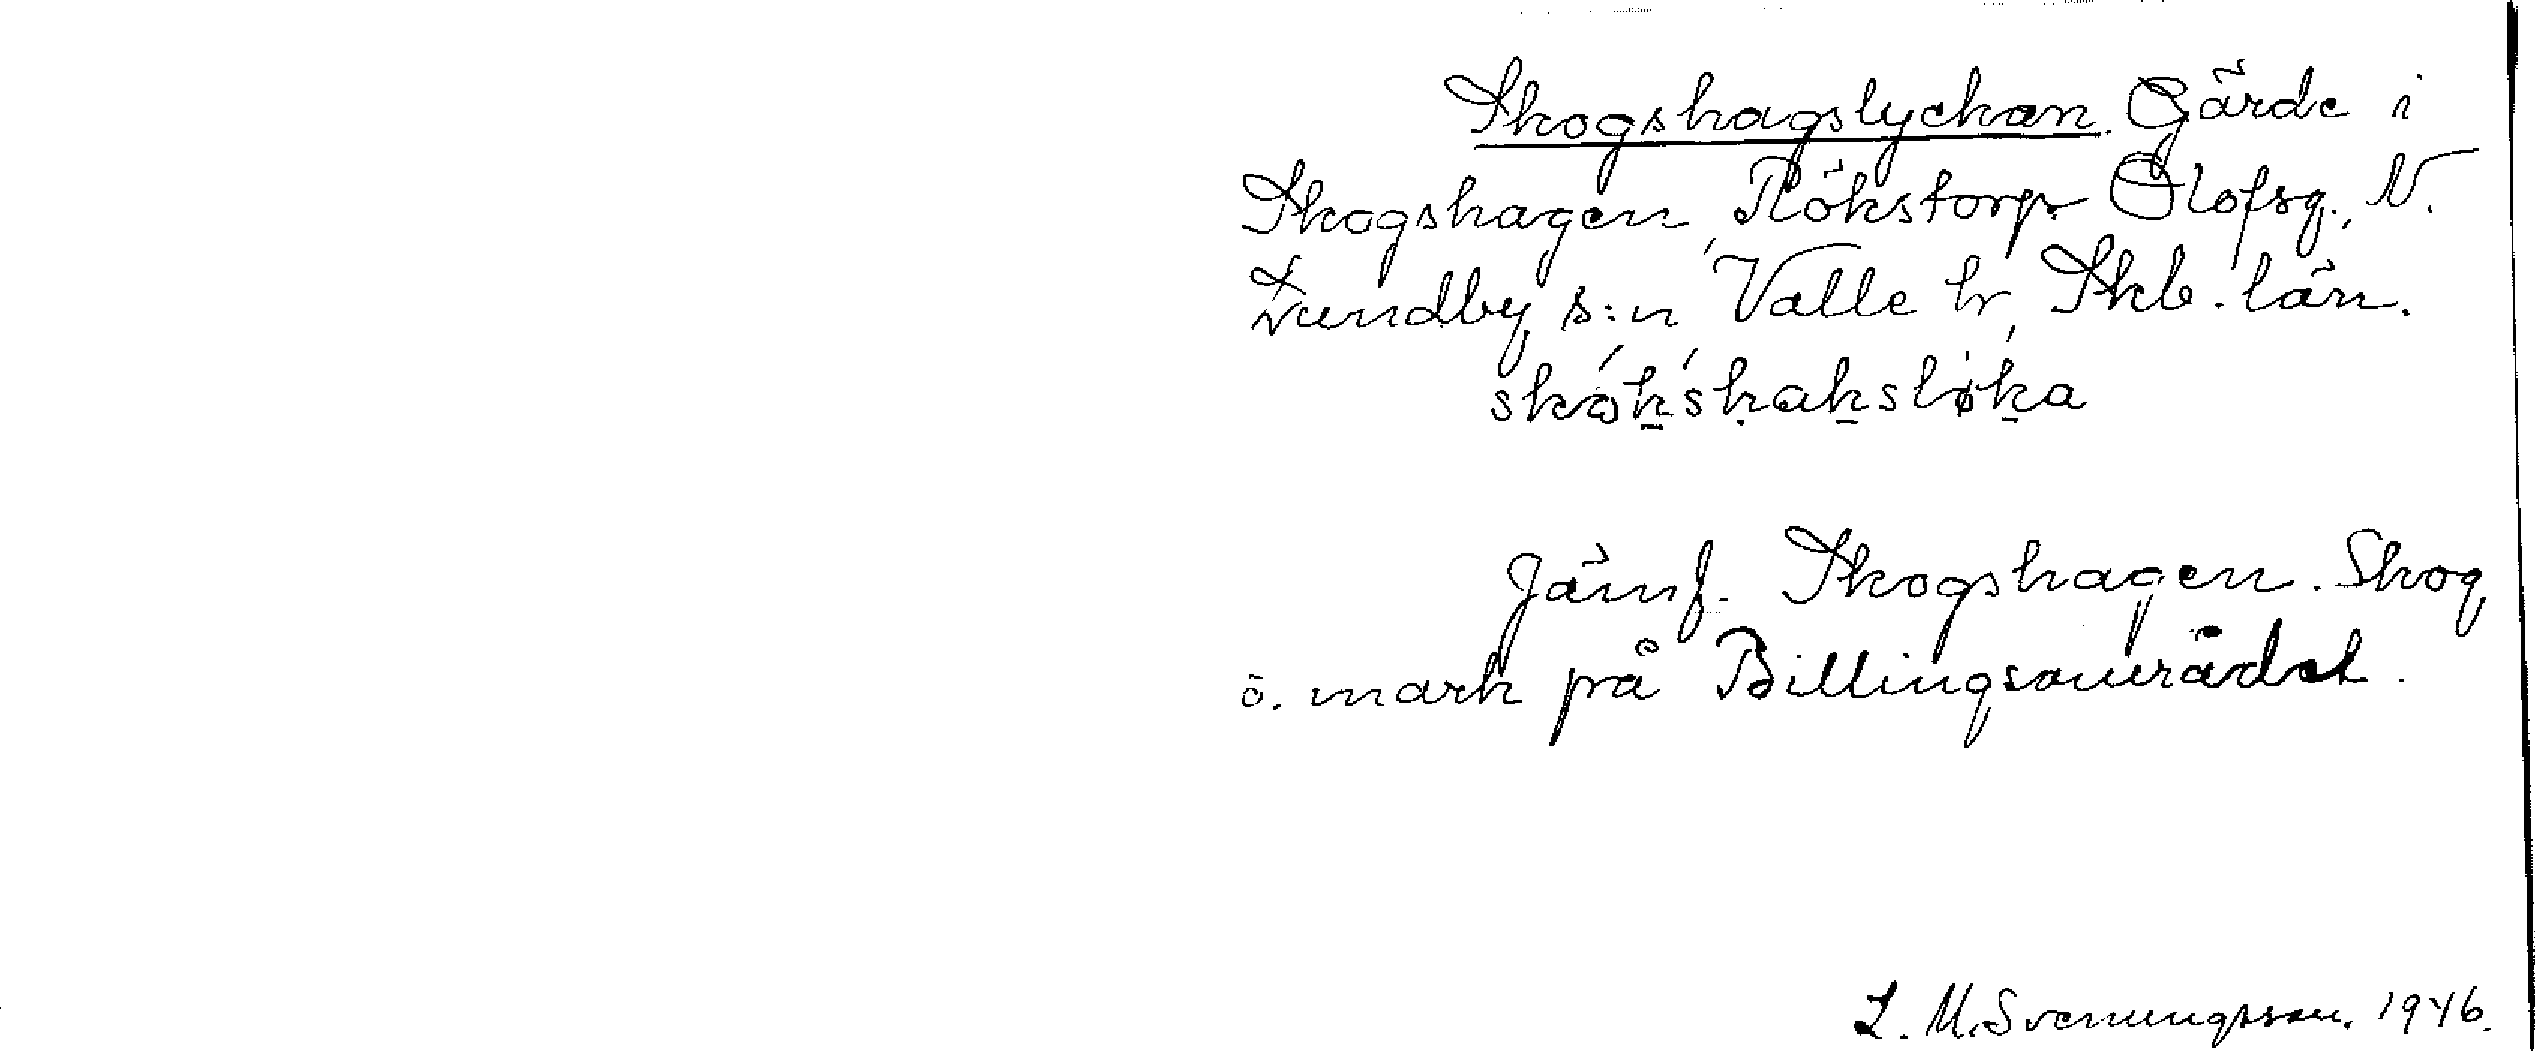 Skogshagslyckan. Gärde i
Skogshagen, Rökstorp Olofsg., N.
Lundby s:n, Valle hr, Skb. län.
skókshaksløka
Jämf. Skogshagen. Skog
o. mark på Billingsområdet.
L. M. Svenungsson. 1946.